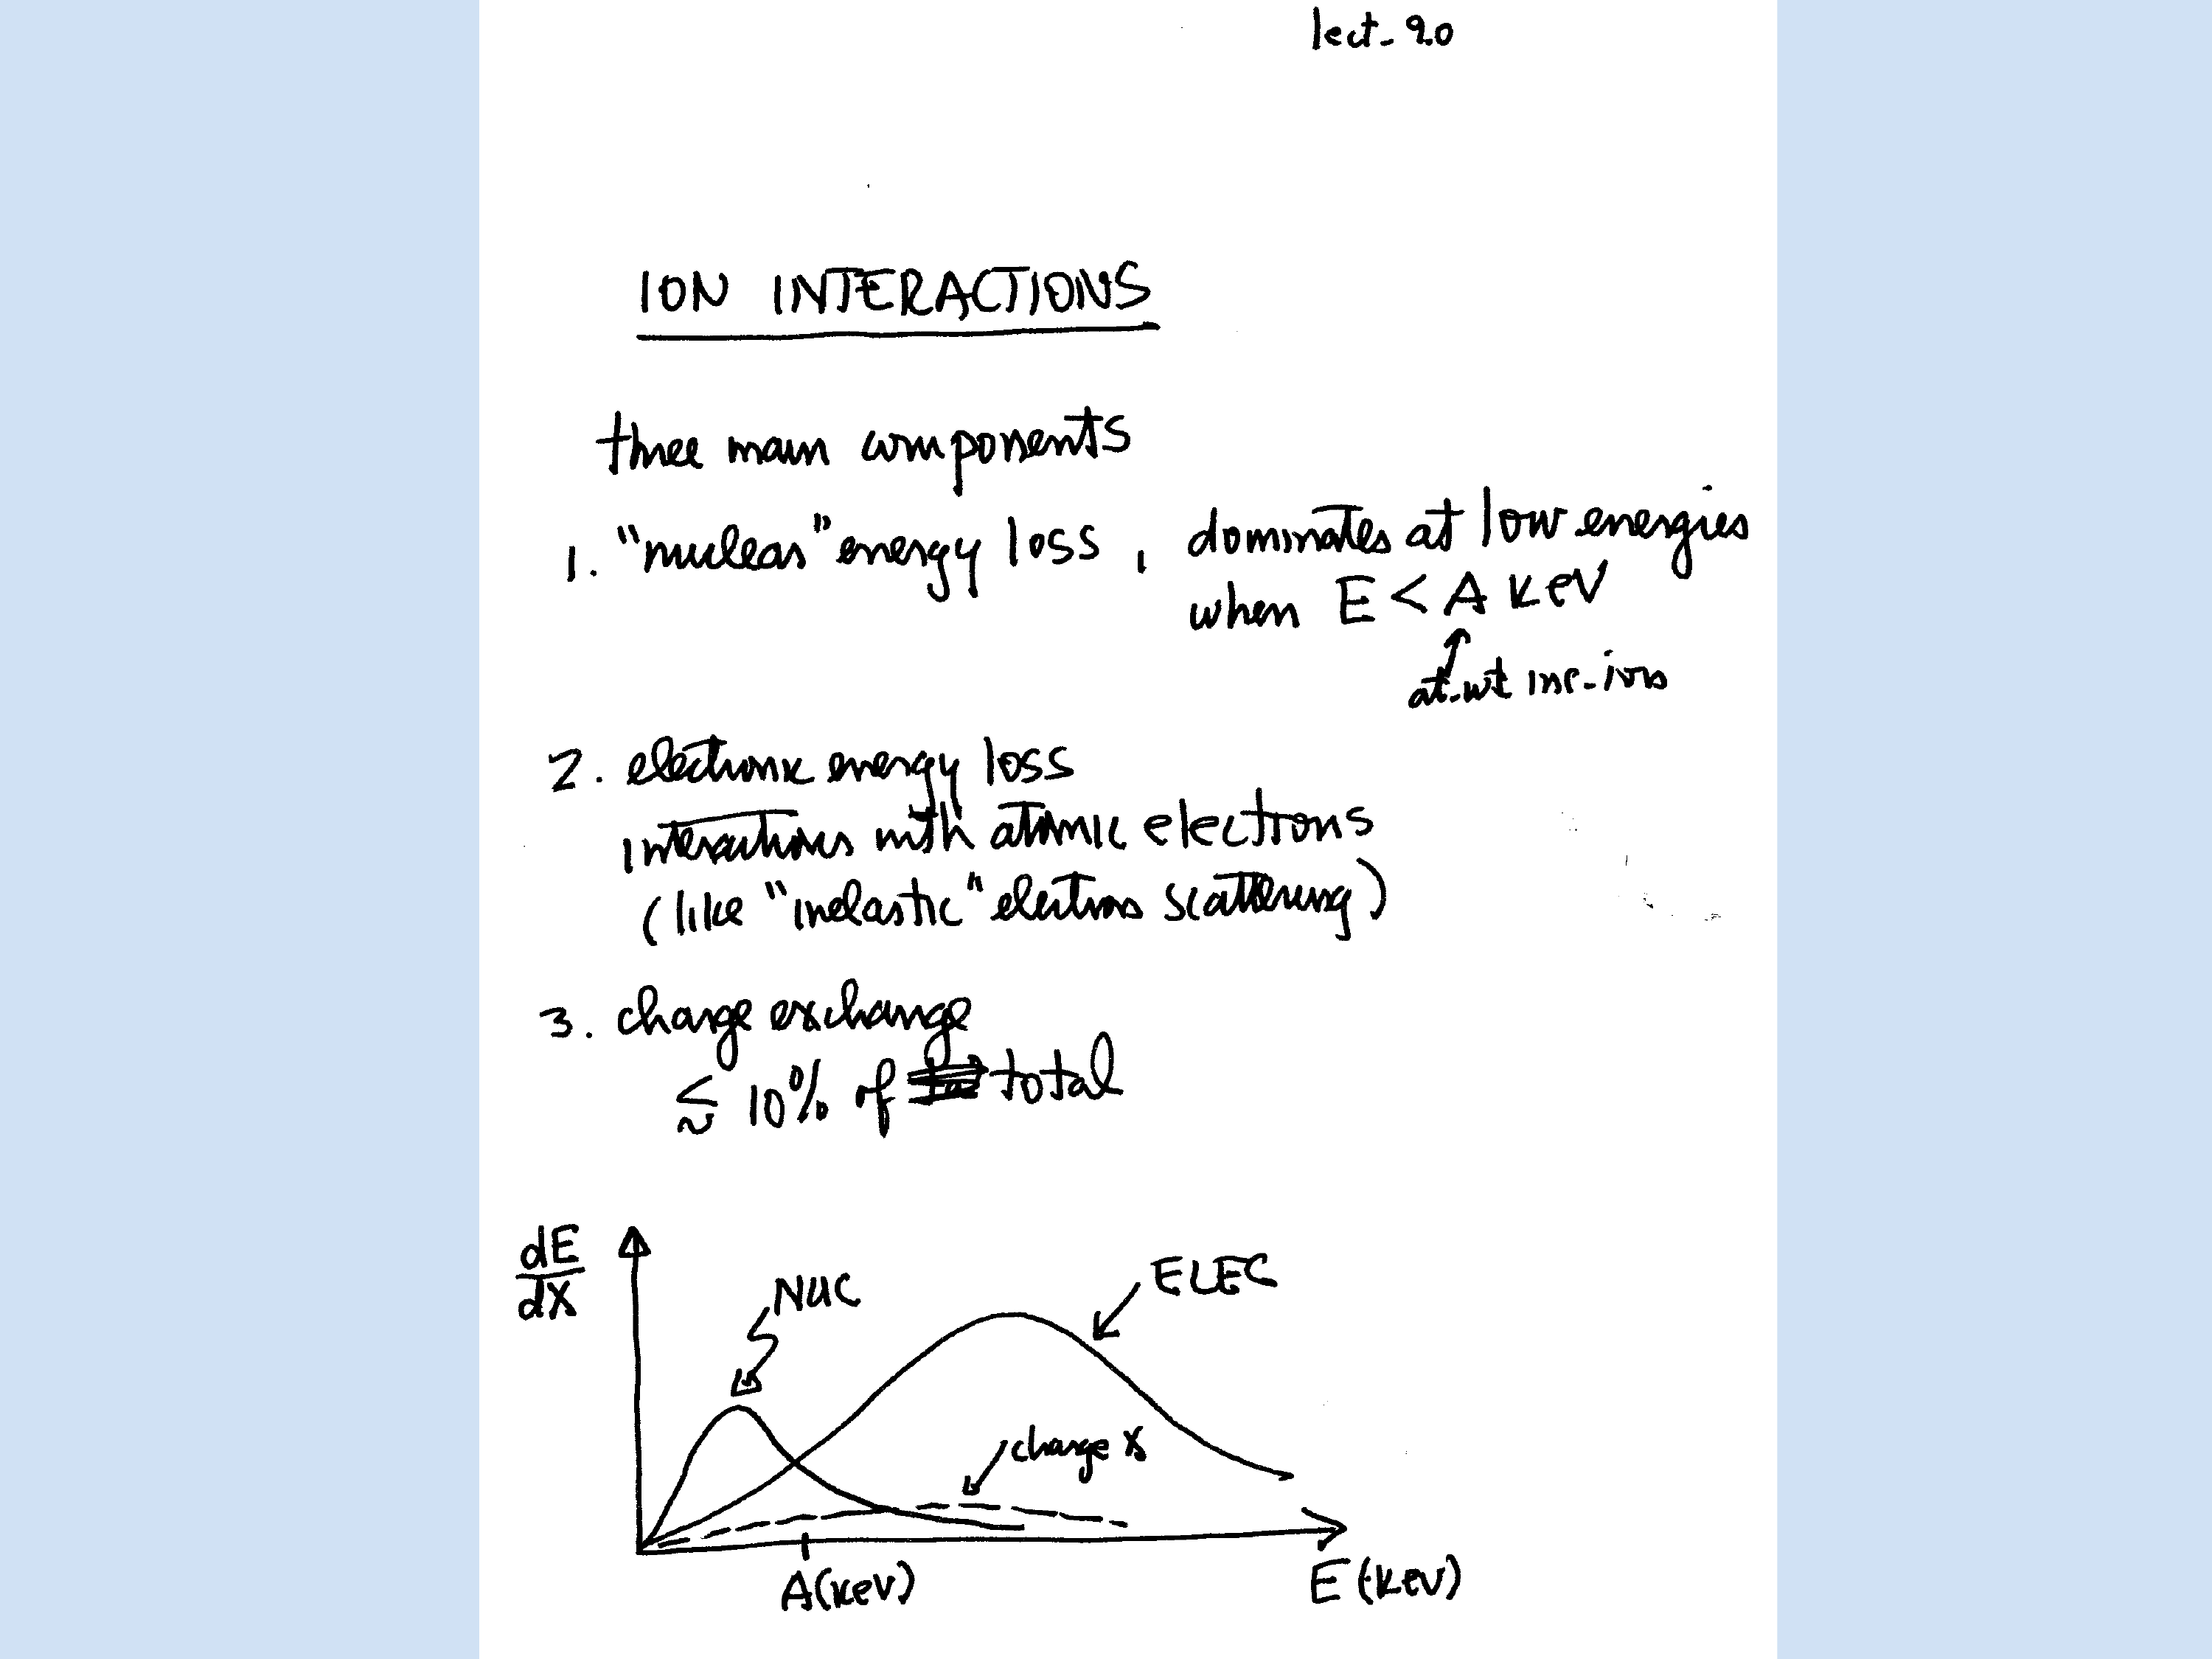 lect- 20
ION INTERACTIONS
three main components
1. "nuclear" energy loss, dominates at low energies
when E < A keV
at-wt inc-ion
2. electronic energy loss
interactions with atomic electrons
(like "inelastic" electron scattering)
3. charge exchange
≲ 10% of total
dE/dX
NUC
ELEC
charge X
A(keV)
E (keV)